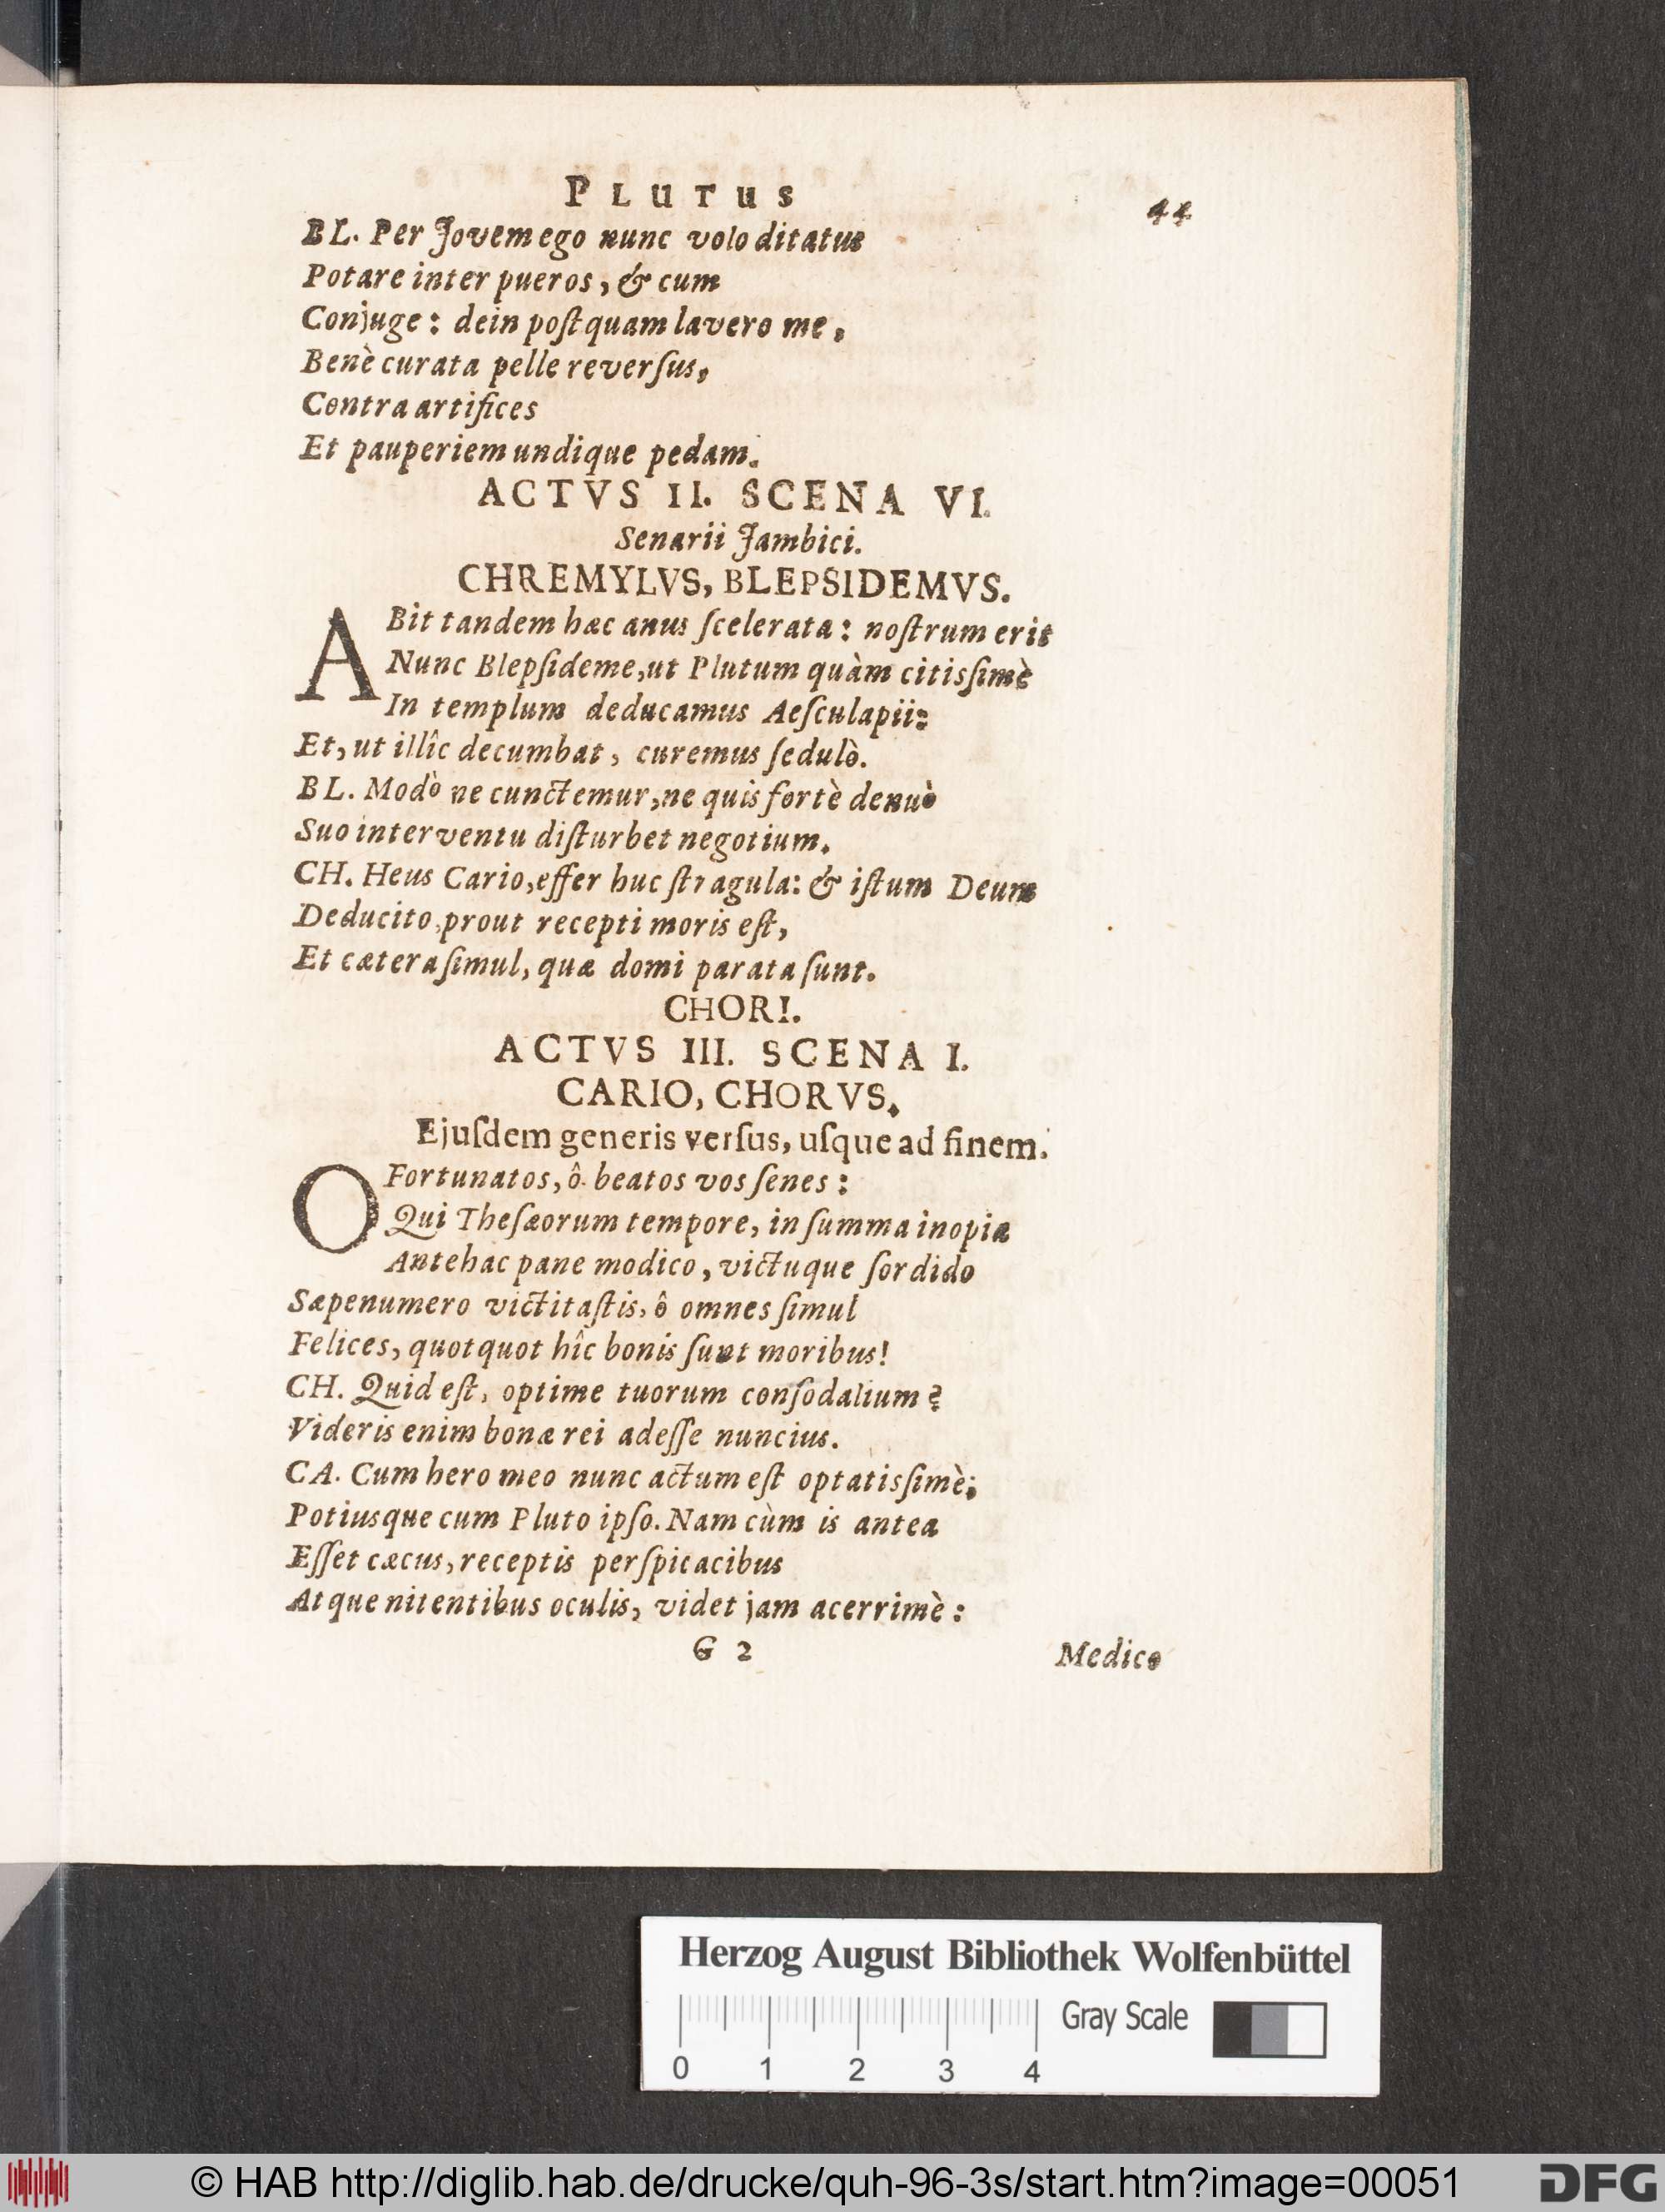 PLUTUS
44
BL. Per Jovem ego nunc volo ditatus
Potare inter pueros, & cum
Conjuge: dein poſtquam lavero me,
Benè curata pelle reverſus,
Contra artifices
Et pauperiem undique pedam.
ACTVS II. SCENA VI.
Senarii Jambici.
CHREMYLVS, BLEPSIDEMVS.
ABit tandem hæc anus ſcelerata: noſtrum erit
Nunc Blepſideme, ut Plutum quàm citisſimè
In templum deducamus Aeſculapii:
Et, ut illîc decumbat, curemus ſedulò.
BL. Modò ne cunctemur, ne quis fortè denuò
Suo interventu diſturbet negotium.
CH. Heus Cario, effer huc ſtragula: & iſtum Deum
Deducito, prout recepti moris eſt,
Et cætera ſimul, quæ domi parata ſunt.
CHORI.
ACTVS III. SCENA I.
CARIO, CHORVS.
Ejuſdem generis verſus, uſque ad finem.
O Fortunatos, ô beatos vos ſenes:
Qui Theſæorum tempore, in ſumma inopia
Antehac pane modico, victuque ſordido
Sæpenumero victitaſtis, ô omnes ſimul
Felices, quotquot hîc bonis ſunt moribus!
CH. Quid eſt, optime tuorum conſodalium?
Videris enim bonæ rei adeſſe nuncius.
CA. Cum hero meo nunc actum eſt optatisſimè;
Potiusque cum Pluto ipſo. Nam cùm is antea
Eſſet cæcus, receptis perſpicacibus
Atque nitentibus oculis, videt jam acerrimè:
G 2
Medico
Herzog August Bibliothek Wolfenbüttel
Gray Scale
0 1 2 3 4
© HAB http://diglib.hab.de/drucke/quh-96-3s/start.htm?image=00051
DFG